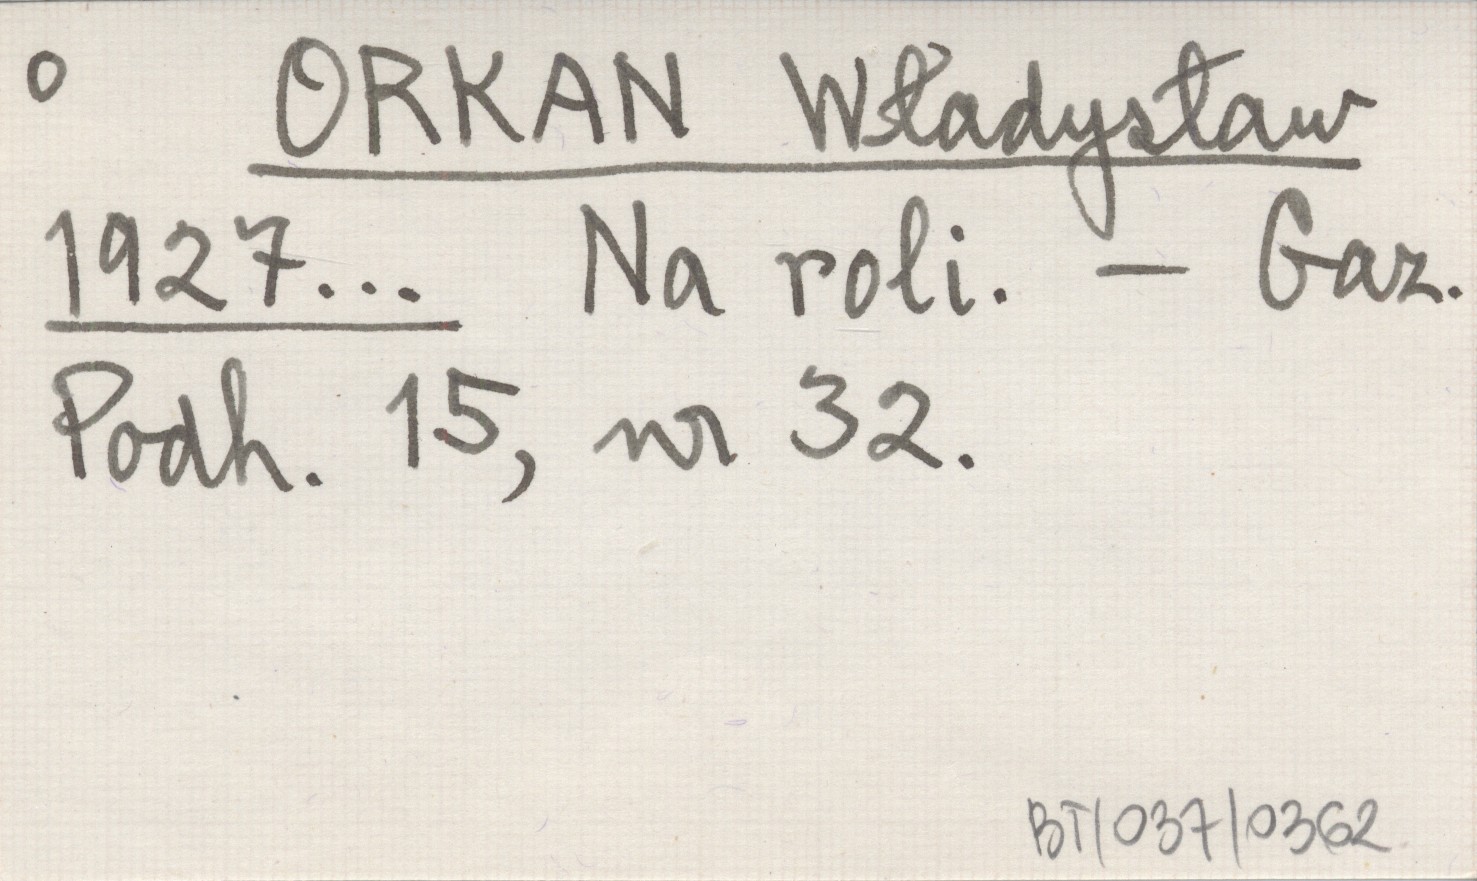 o ORKAN Władysław
1927... Na roli. — Gaz.
Podh. 15, nr 32.
BT/037/0362